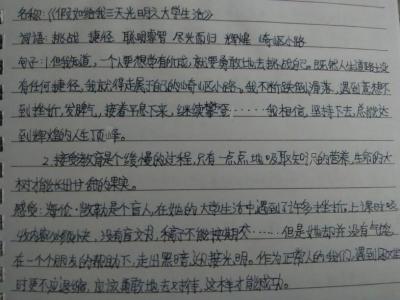 名称:《假如给我三天光明之大学生活》
词语: 挑战 捷径 聪明睿智 尽兴而归 辉煌 崎岖小路
句子: 1.但我知道,一个人要想学有所成,就要勇敢地去挑战自己。既然人生道路上没
有任何捷径,我就得走属于自己的崎岖小路。我不断跌倒、滑落,遇到意想不
到挫折,发脾气,接着平息下来,继续攀登……我相信,坚持下去,总能达
到辉煌的人生顶峰。
2.接受教育是个缓慢的过程,只有一点点地吸取知识的营养,生命的大
树才能长出甘甜的果实。
感受:海伦·凯勒是个盲人,在她的大学生活中遇到了许多挫折。上课时吸
收内容必须快,没有盲文书,稿子不能按期交……但是她却并没有气馁
在一个个朋友的帮助下,走出黑暗,迎接光明。作为正常人的我们,遇到困难
时更不应退缩,应该勇敢地去对待,这样才能成功。